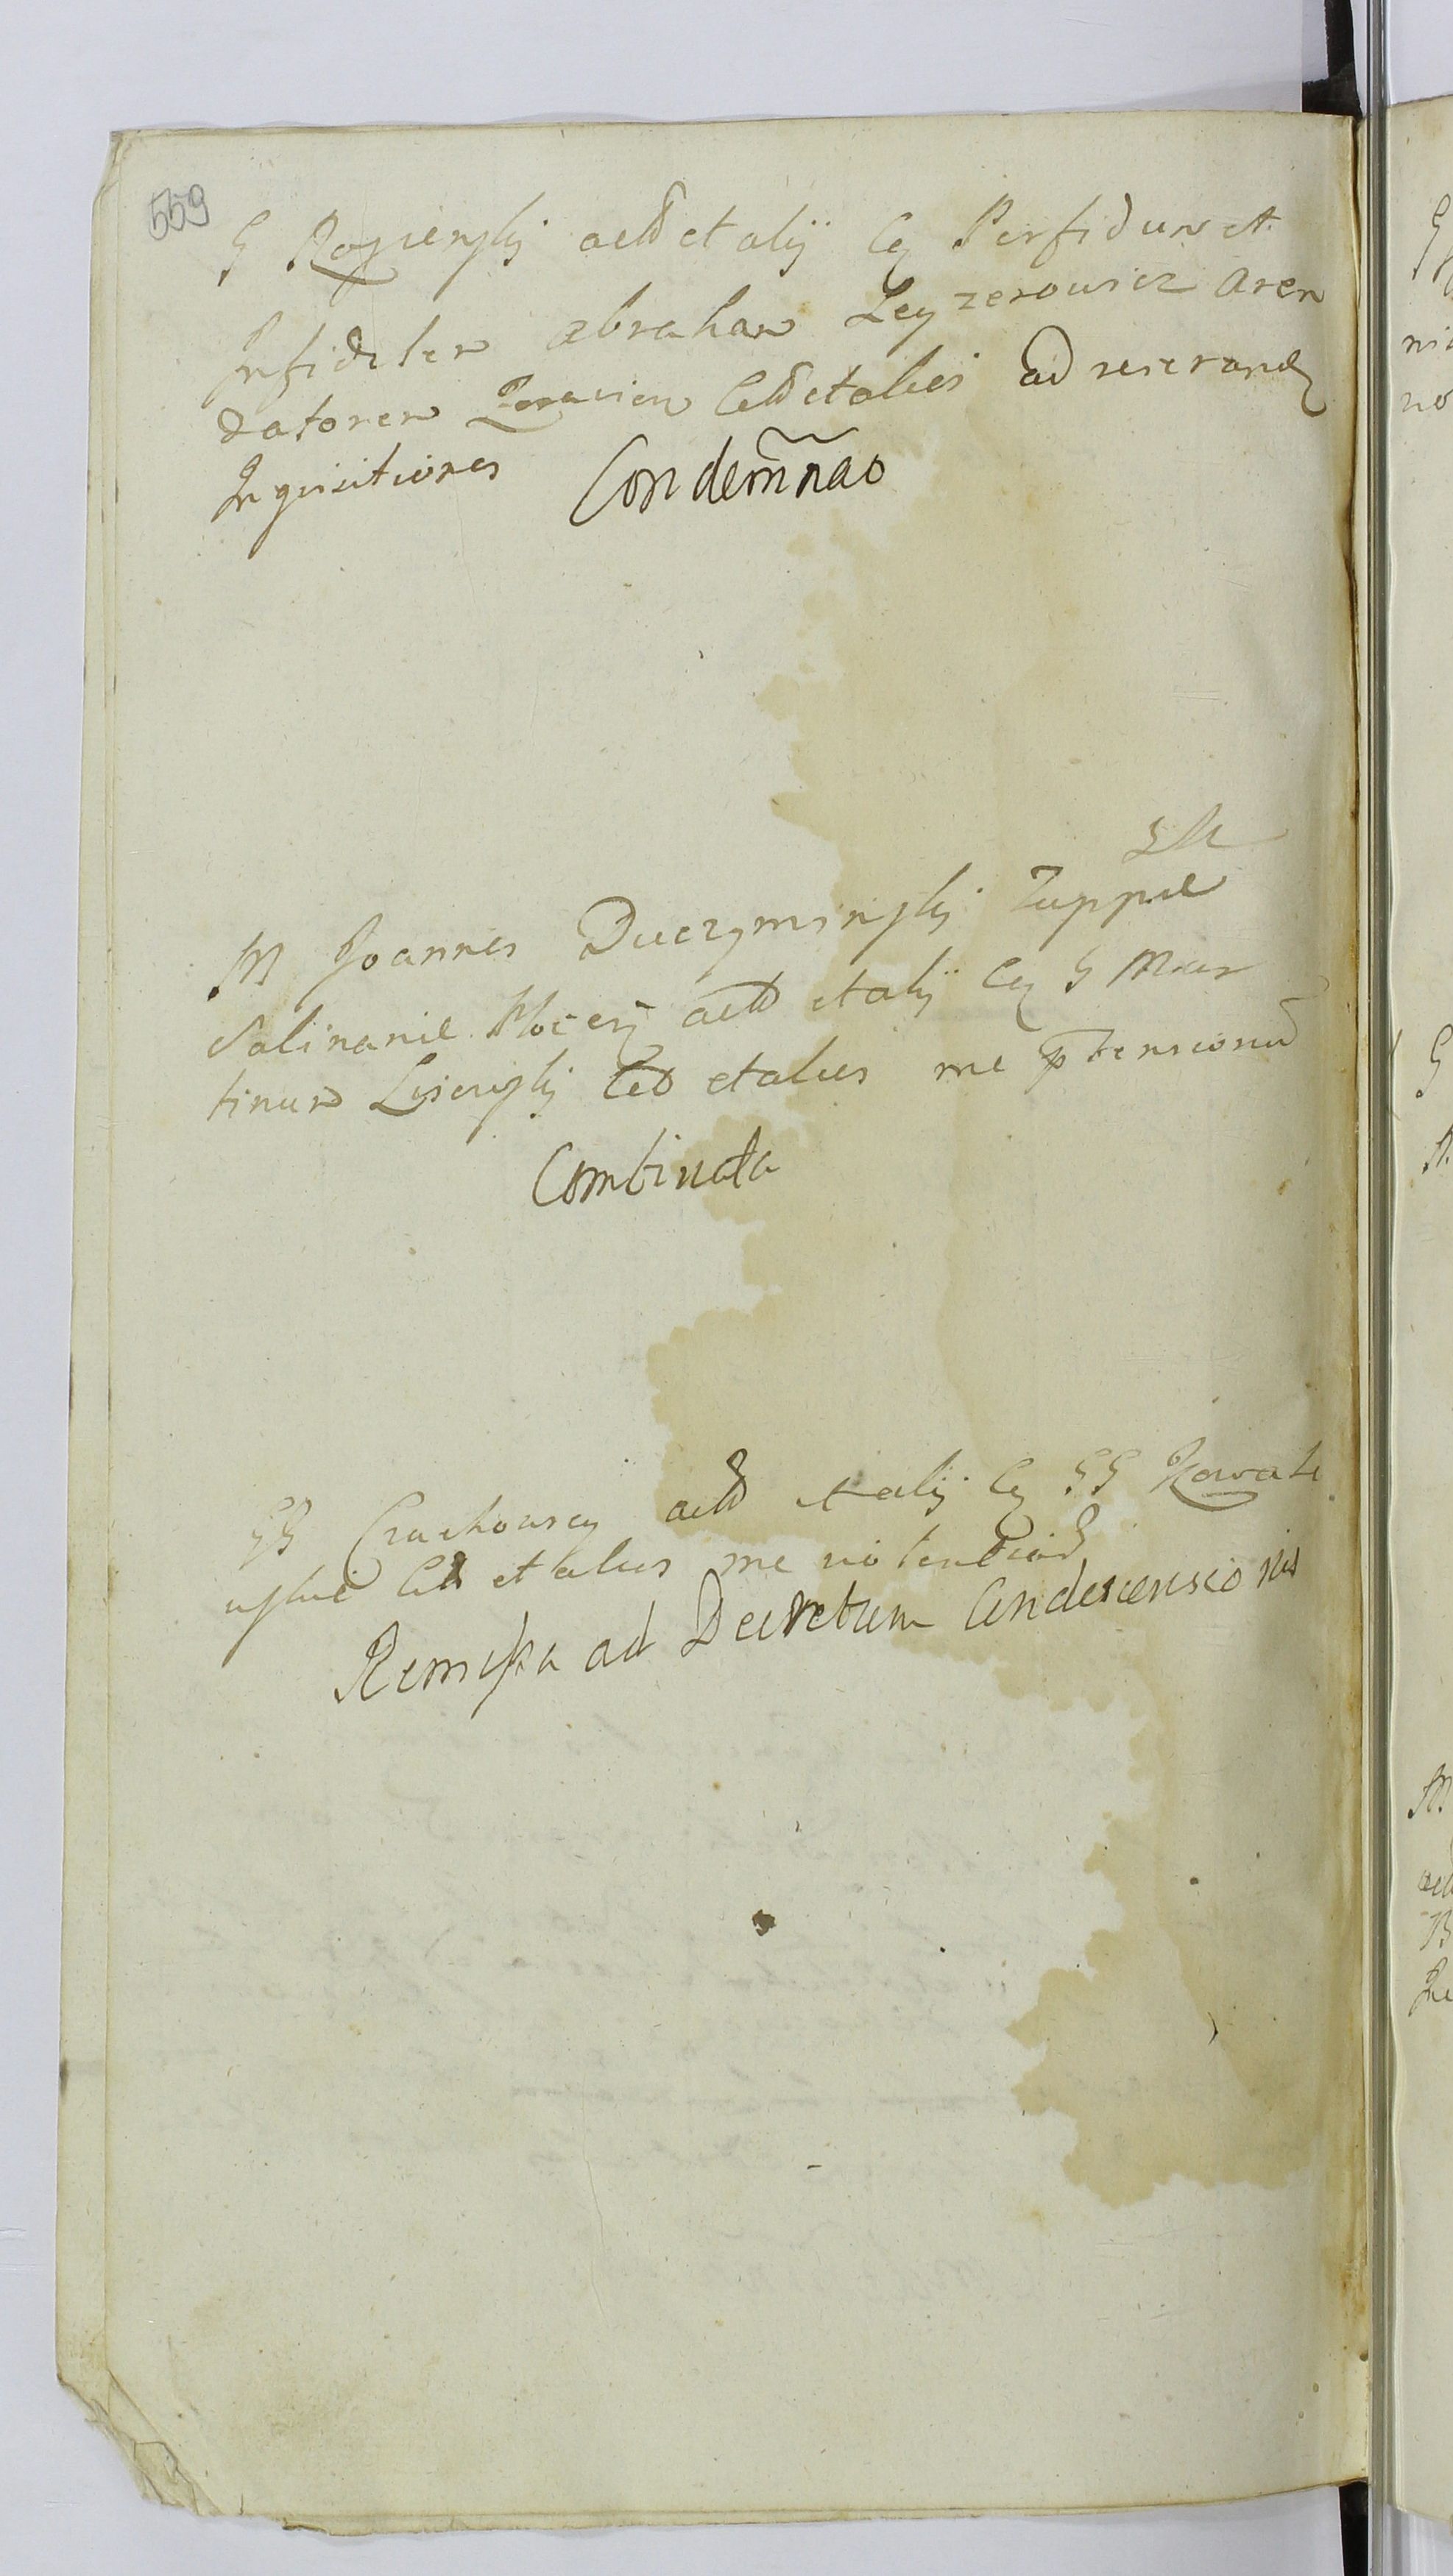 559
G Rogienski actt et alÿ Cz Perfidum et
Infidelem Abraham Leyzerowicz Aren
datorem citt et alios ad reserand
Inquisitiones Condem̃nao
M Joannes Duczyminski Zuppæ
Salinariæ actt et alÿ Cz G Mar
tinum citt et alios me ptensionu
Combinata
GG Czachowscy actt et alÿ Cz GG Kowale
wskie citt et alios me
Remissa ad Decretum Condescensionis